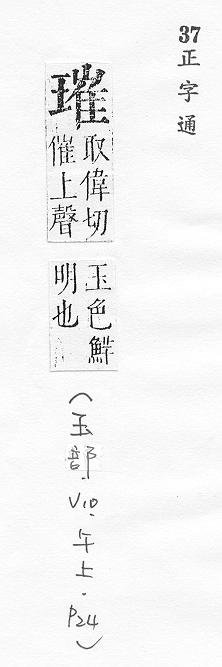 37
正字通
璀
取偉切
催上聲
玉色鮮
明也
(玉部.V10.午上.P24)